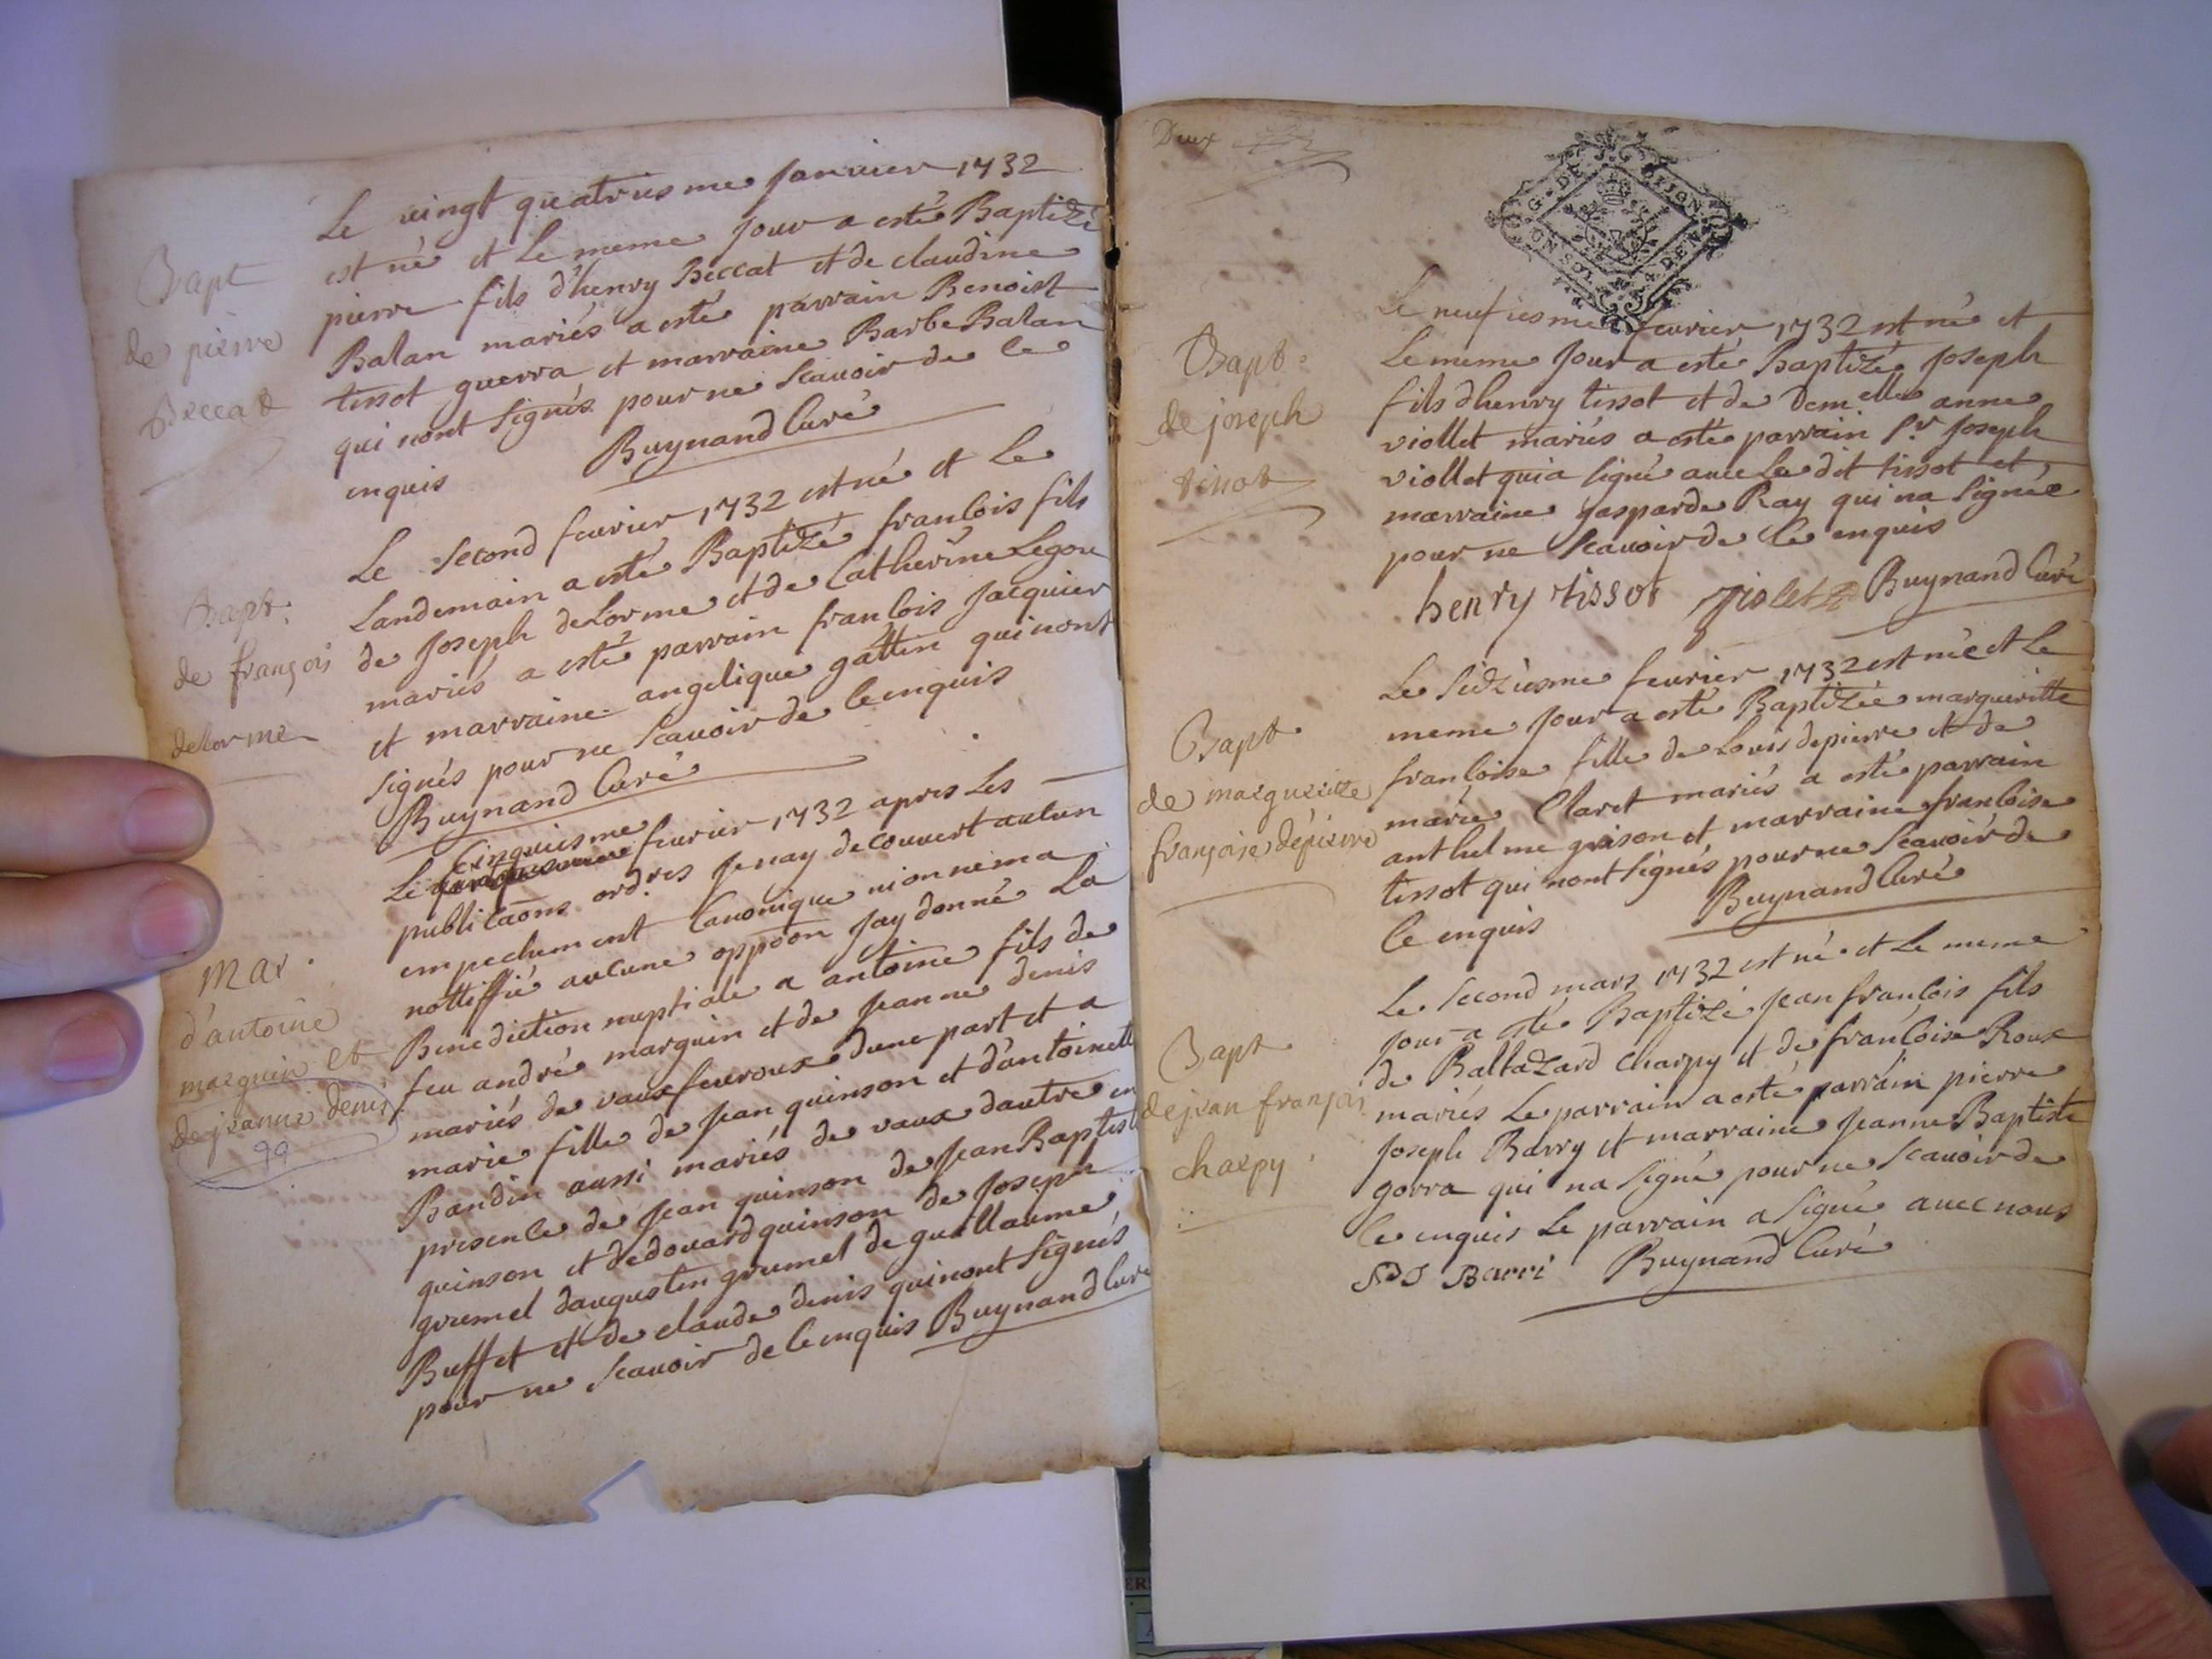 Bapt
de pierre
Beccat
Le vingt quatriesme Januier 1732
est né et Le meme jour a esté Baptizé
pierre fils d'henry Beccat et de claudine
Balan mariés a esté parrain Benoist
tissot guerra et marraine Barbe Balan
qui nont signés pour ne scauoir de ce
enquis Buynand Curé
Bapt.
de françois
delorme
Le second feurier 1732 est né et Le
Landemain a esté Baptizé francois fils
de Joseph deLorme et de Catherine Legou
mariés a esté parrain francois Jacquier
et marraine angelique gattin qui nont
signés pour ne scauoir de ce enquis
Buynand Curé
Mar.
d'antoine
marguin et
de jeanne denis
99
cinquiesme
Le feurier 1732 apres Les
publicaons ordres Je nay decouvert aucun
empechement Canonique ni on ne ma
nottiffié aucune oppoon Jay donné La
Benediction nuptiale a antoine fils de
feu andré marguin et de Jeanne denis
mariés de vaux feuroux dune part et a
marie fille de Jean quinson et d'antoinette
Bandin aussi mariés de vaux dautre en
presence de Jean quinson de Jean Baptiste
quinson et dedouard quinson de Joseph
grumel daugustin grumel de guillaume
Buffet et de claude denis qui nont signés
pour ne scauoir de ce enquis Buynand Curé
Deux
G. DE DIJON
ON SOL 4 DEN
Bapt.
de joseph
tissot
Le neufiesme feurier 1732 est né et
Le meme Jour a esté Baptizé Joseph
fils dhenry tissot et de Demelle anne
viollet mariés a esté parrain Sr Joseph
viollet qui a signé auec Le dit tissot et
marraine gasparde Ray qui na signée
pour ne scauoir de ce enquis
henry tissot violet Buynand Curé
Bapt.
de margueritte
françoise depierre
Le sidziesme feurier 1732 est née et Le
meme Jour a esté Baptizée margueritte
francoise fille de Louis depierre et de
marie Claret mariés a esté parrain
anthelme grison et marraine francoise
tissot qui nont signés pour ne scauoir de
ce enquis Buynand Curé
Bapt.
de jean françois
charpy
Le second mars 1732 est né et Le meme
Jour a esté Baptizé Jean francois fils
de Baltazard Charpy et de francoise Roux
mariés Le parrain a esté parrain pierre
Joseph Barry et marraine Jeanne Baptiste
gorra qui na signé pour ne scauoir de
ce enquis Le parrain a signé auec nous
Barri Buynand Curé